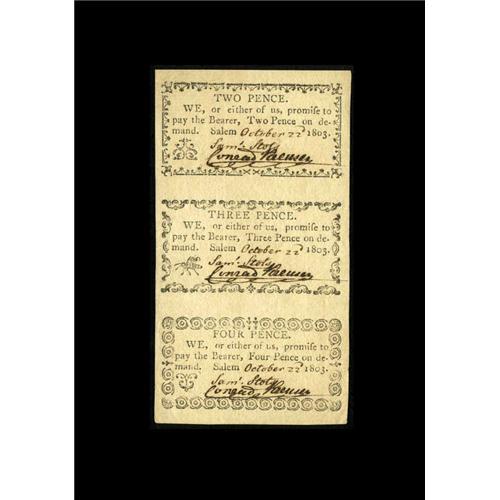 TWO PENCE.
WE, or either of us, promise to
pay the Bearer, Two Pence on de-
mand. Salem October 22d 1803.
Saml. Stotz
Conrad Kreuser
THREE PENCE.
WE, or either of us, promise to
pay the Bearer, Three Pence on de-
mand. Salem October 22d 1803.
Saml. Stotz
Conrad Kreuser
FOUR PENCE.
WE, or either of us, promise to
pay the Bearer, Four Pence on de-
mand. Salem October 22d 1803.
Saml. Stotz
Conrad Kreuser